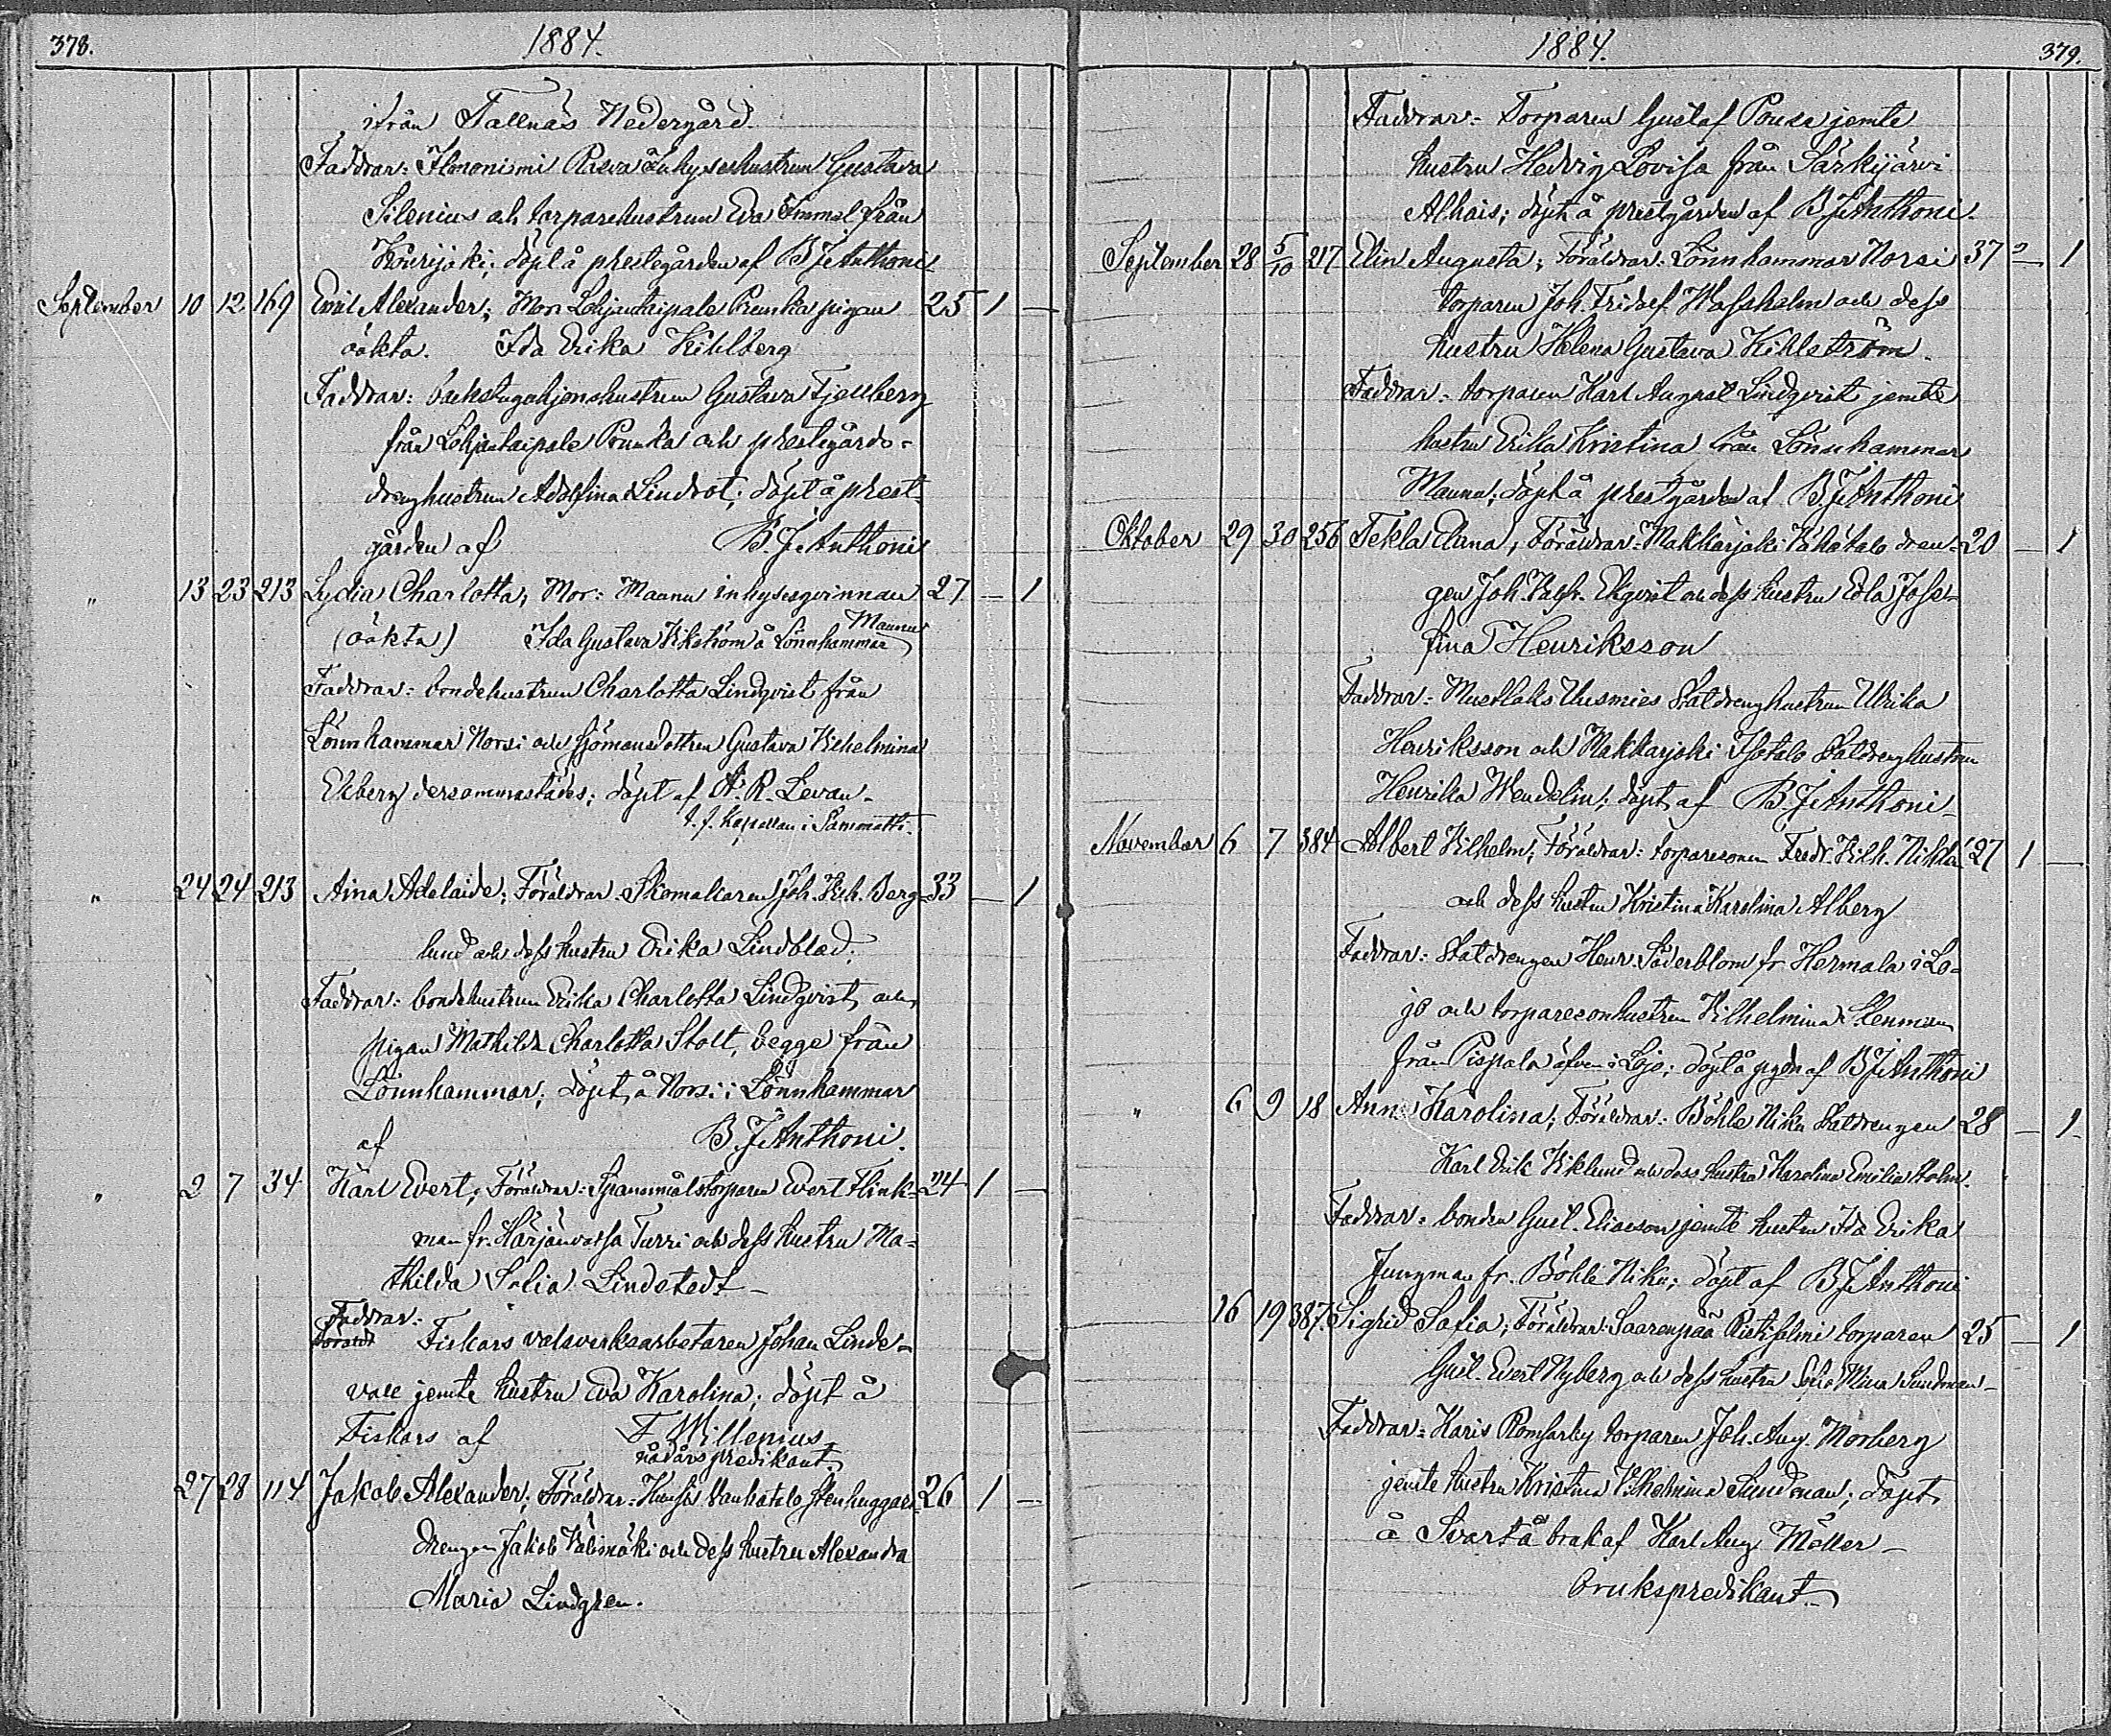 378. 1884.
ifrån Tallnäs Nedergård.
Faddrar: Ilmoniemi Rasva Inhyseshustrun Gustava
Silenius och torparehustrun Eva Emmel från
Kourijoki; döpt å prestegården af B J Anthoni
September 10 12 169 Emil Alexander; Mor: Lohjantaipale Prunka pigan 25 1 —
oäkta. Ida Erika Kihlberg
Faddrar: backstuguhjonshustrun Gustava Fjellberg
från Lohjantaipale Prunka och prestegårds-
drenghustrun Adolfina Lindrot; döpt å prest-
gården af B. J. Anthoni
" 13 23 213 Lydia Charlotta; Mor: Maunu inhysesqvinnan 27 — 1
(oäkta) Ida Gustava Vikström å Lönnhammar Maunu
Faddrar: bondehustrun Charlotta Lindqvist från
Lönnhammar Norsi och sjömansdottren Gustava Vilhelmina
Ekberg dersammastädes; döpt af A. R. Levan-
t. f. Kapellan i Sammatti.
" 24 24 213 Aina Adelaide; Föräldrar: Skomakaren Joh. Vilh. Berg- 33 — 1
lund och dess hustru Erika Lindblad.
Faddrar: bondehustrun Erika Charlotta Lindqvist och
pigan Mathilda Charlotta Stolt, begge från
Lönnhammar; döpt å Norsi i Lönnhammar
af B. J. Anthoni.
" 2 7 34 Karl Evert; Föräldrar: Spannmålstorparen Evert Flink- 24 1 —
man fr. Härjänvatsa Turri och dess hustru Ma-
thilda Sofia Lindstedt —
Faddrar:
Föräldr Fiskars valsverksarbetaren Johan Linde-
vall jemte hustru Eva Karolina; döpt å
Fiskars af F Willenius
nådårspredikant.
27 28 114 Jakob Alexander; Föräldrar: Vanhatalo Stenhuggare- 26 1 —
drengen Jakob Välimäki och dess hustru Alexandra
Maria Lindgren.
1884. 379.
Faddrar: Torparen Gustaf Pousa jemte
hustru Hedvig Lovisa från Särkijärvi
Alhais; döpt å prestgården af B J Anthoni.
September 28 5/10 217 Elin Augusta; Föräldrar: Lönnhammar Norsi 37 — 1
torparen Joh. Fridolf Wassholm och dess
hustru Helena Gustava Kihlström.
Faddrar: torparen Karl August Lindqvist jemte
hustru Erika Kristina från Lönnhammar
Maunu; döpt å prestgården af B. J. Anthoni
Oktober 29 30 256 Tekla Elina; Föräldrar: Makkarjoki Vähätalo dren- 20 — 1
gen Joh. Ekqvist och dess hustru Edla Jose-
fina Henriksson
Faddrar: Mustlaks Uusmies Statdrenghustrun Ulrika
Henriksson och Makkarjoki Isotalo Statdrenghustrun
Henrika Wendelin; döpt af B. J. Anthoni —
November 6 7 384 Albert Vilhelm; Föräldrar: torparesonen Fredr. Vilh. Nihla 27 1 —
och dess hustru Kristina Karolina Alberg
Faddrar: Statdrengen Henr. Söderblom fr. Hermala i Lo-
jo och torparesonhustrun Vilhelmina Stenman
från Pispala äfven i Lojo; döpt å pgdn af B J Anthoni
" 6 9 18 Anna Karolina; Föräldrar: Böhle Niku Statdrengen 28 — 1
Karl Erik Viklund och dess hustru Karolina Emilia Holm.
Faddrar: bonden Gust. Eliasson jemte hustru Ida Erika
Jungman fr. Böhle Niku; döpt af B J Anthoni
16 19 387 Sigrid Sofia; Föräldrar: Saarenpää torparen 25 — 1
Gust. Evert Nyberg och dess hustru Sofia Mina Sundman —
Faddrar: Karis Romsarby torparen Joh. Aug. Morberg
jemte hustru Kristina Vilhelmina Sundman; döpt
å Svartå bruk af Karl Aug Möller —
brukspredikant. —